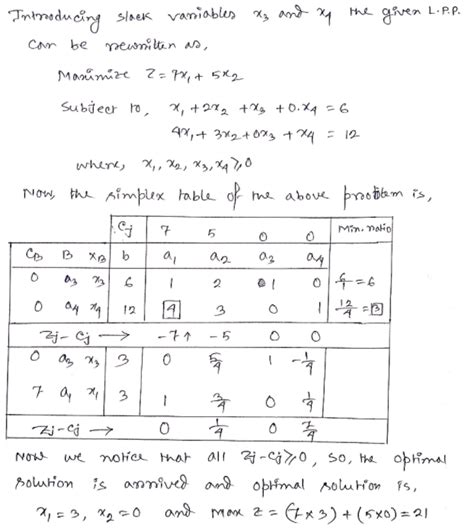 Introducing slack variables x₃ and x₄ the given L.P.P.
can be rewritten as,
Maximize Z = 7x₁ + 5x₂
Subject to, x₁ + 2x₂ + x₃ + 0.x₄ = 6
4x₁ + 3x₂ + 0x₃ + x₄ = 12
where, x₁, x₂, x₃, x₄ ≥ 0
Now, the simplex table of the above problem is,
Cj 7 5 0 0 Min. ratio
CB B XB b a₁ a₂ a₃ a₄
0 a₃ x₃ 6 1 2 1 0 6/1 = 6
0 a₄ x₄ 12 4 3 0 1 12/4 = 3
Zj - Cj → -7↑ -5 0 0
0 a₃ x₃ 3 0 5/4 1 -1/4
7 a₁ x₁ 3 1 3/4 0 1/4
Zj - Cj → 0 1/4 0 7/4
Now we notice that all Zj - Cj ≥ 0, so, the optimal
solution is arrived and optimal solution is,
x₁ = 3, x₂ = 0 and max Z = (7×3) + (5×0) = 21